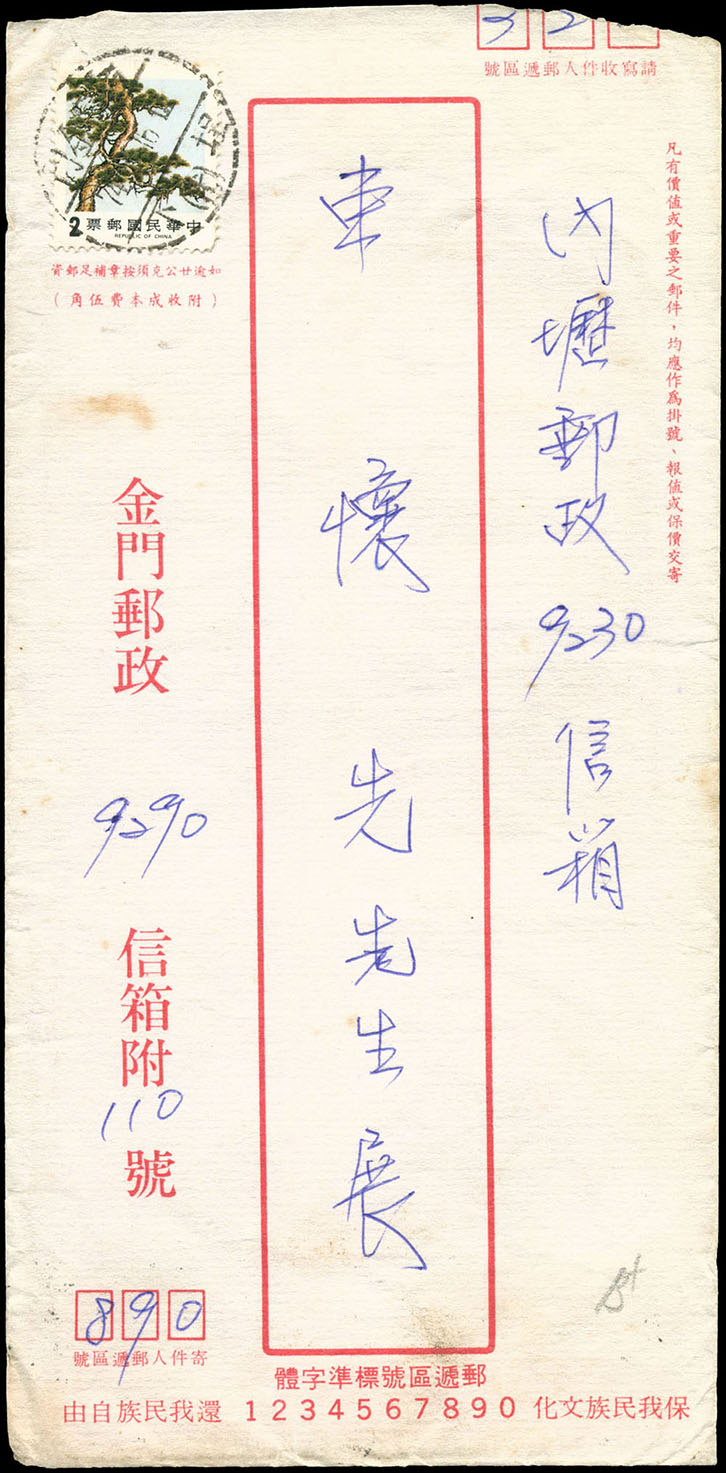 3 2
請寫收件人郵遞區號
凡有價值或重要之郵件，均應作為掛號、報值或保價交寄
內壢郵政9230信箱
車懷先先生展
中華民國郵票 2
REPUBLIC OF CHINA
如逾廿公克須按章補足郵資
（附收成本費伍角）
金門郵政 9290 信箱附 110 號
890
寄件人郵遞區號
郵遞區號標準字體
保我民族文化 1234567890 還我民族自由